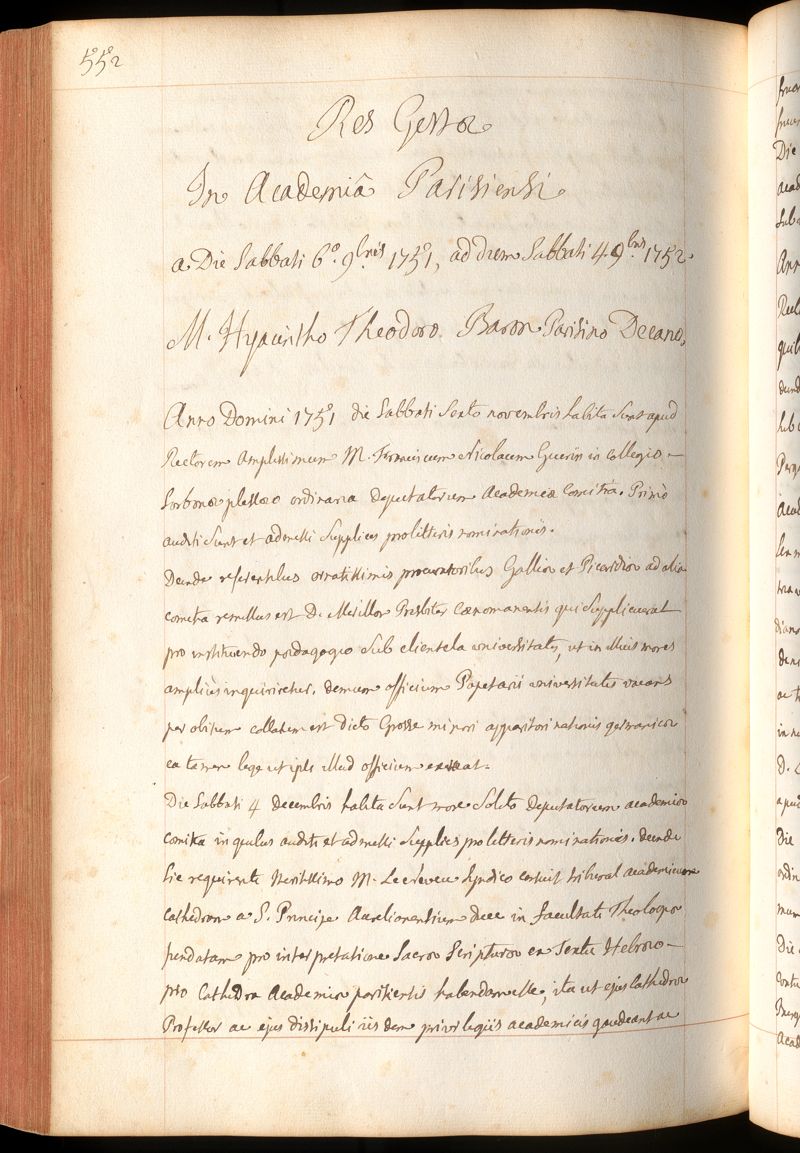 552
Res Gestæ
In Academiâ Parisiensi
a Die Sabbati 6° 9bris 1751, ad diem Sabbati 4 9bris 1752
M. Hyacintho Theodoro Baron Parisino Decano.
Anno Domini 1751 die Sabbati Sexto novembris habita sunt apud
Rectorem Amplissimum M. Franciscum Nicolaum Guerin in Collegio
Sorbonæ plessæo ordinaria deputatorum Academiæ Comitia. Primò
auditi sunt et admissi supplices pro litteris nominationis.
Deinde referentibus ornatissimis procuratoribus Galliæ et Picardiæ ad alia
comitia remissus est D. Mesillor Presbiter Cænomanensis qui supplicuerat
pro instituendo pædagogio sub clientela universitatis, ut in illius mores
ampliùs inquiriretur. demum officium Papetarii universitatis vacans
per obitum collatum est dicto Grosse minori apparitori nationis germanicæ
ea tamen lege ut ipse illud officium exerceat.
Die Sabbati 4 decembris habita sunt more solito deputatorum academiæ
comitia in quibus auditi et admissi supplices pro litteris nominationis. deinde
sic requirente meritissimo M. syndico censuit tribunal academicum
cathedram a S. Principe Aurelianensium duce in facultate Theologiæ
fundatam pro interpretatione Sacræ Scripturæ ex Textu Hebræo
pro Cathedra Academiæ parisiensis habendam esse, ita ut ejus Cathedræ
Professor ac ejus discipuli iisdem privilegiis academicis gaudeant ac